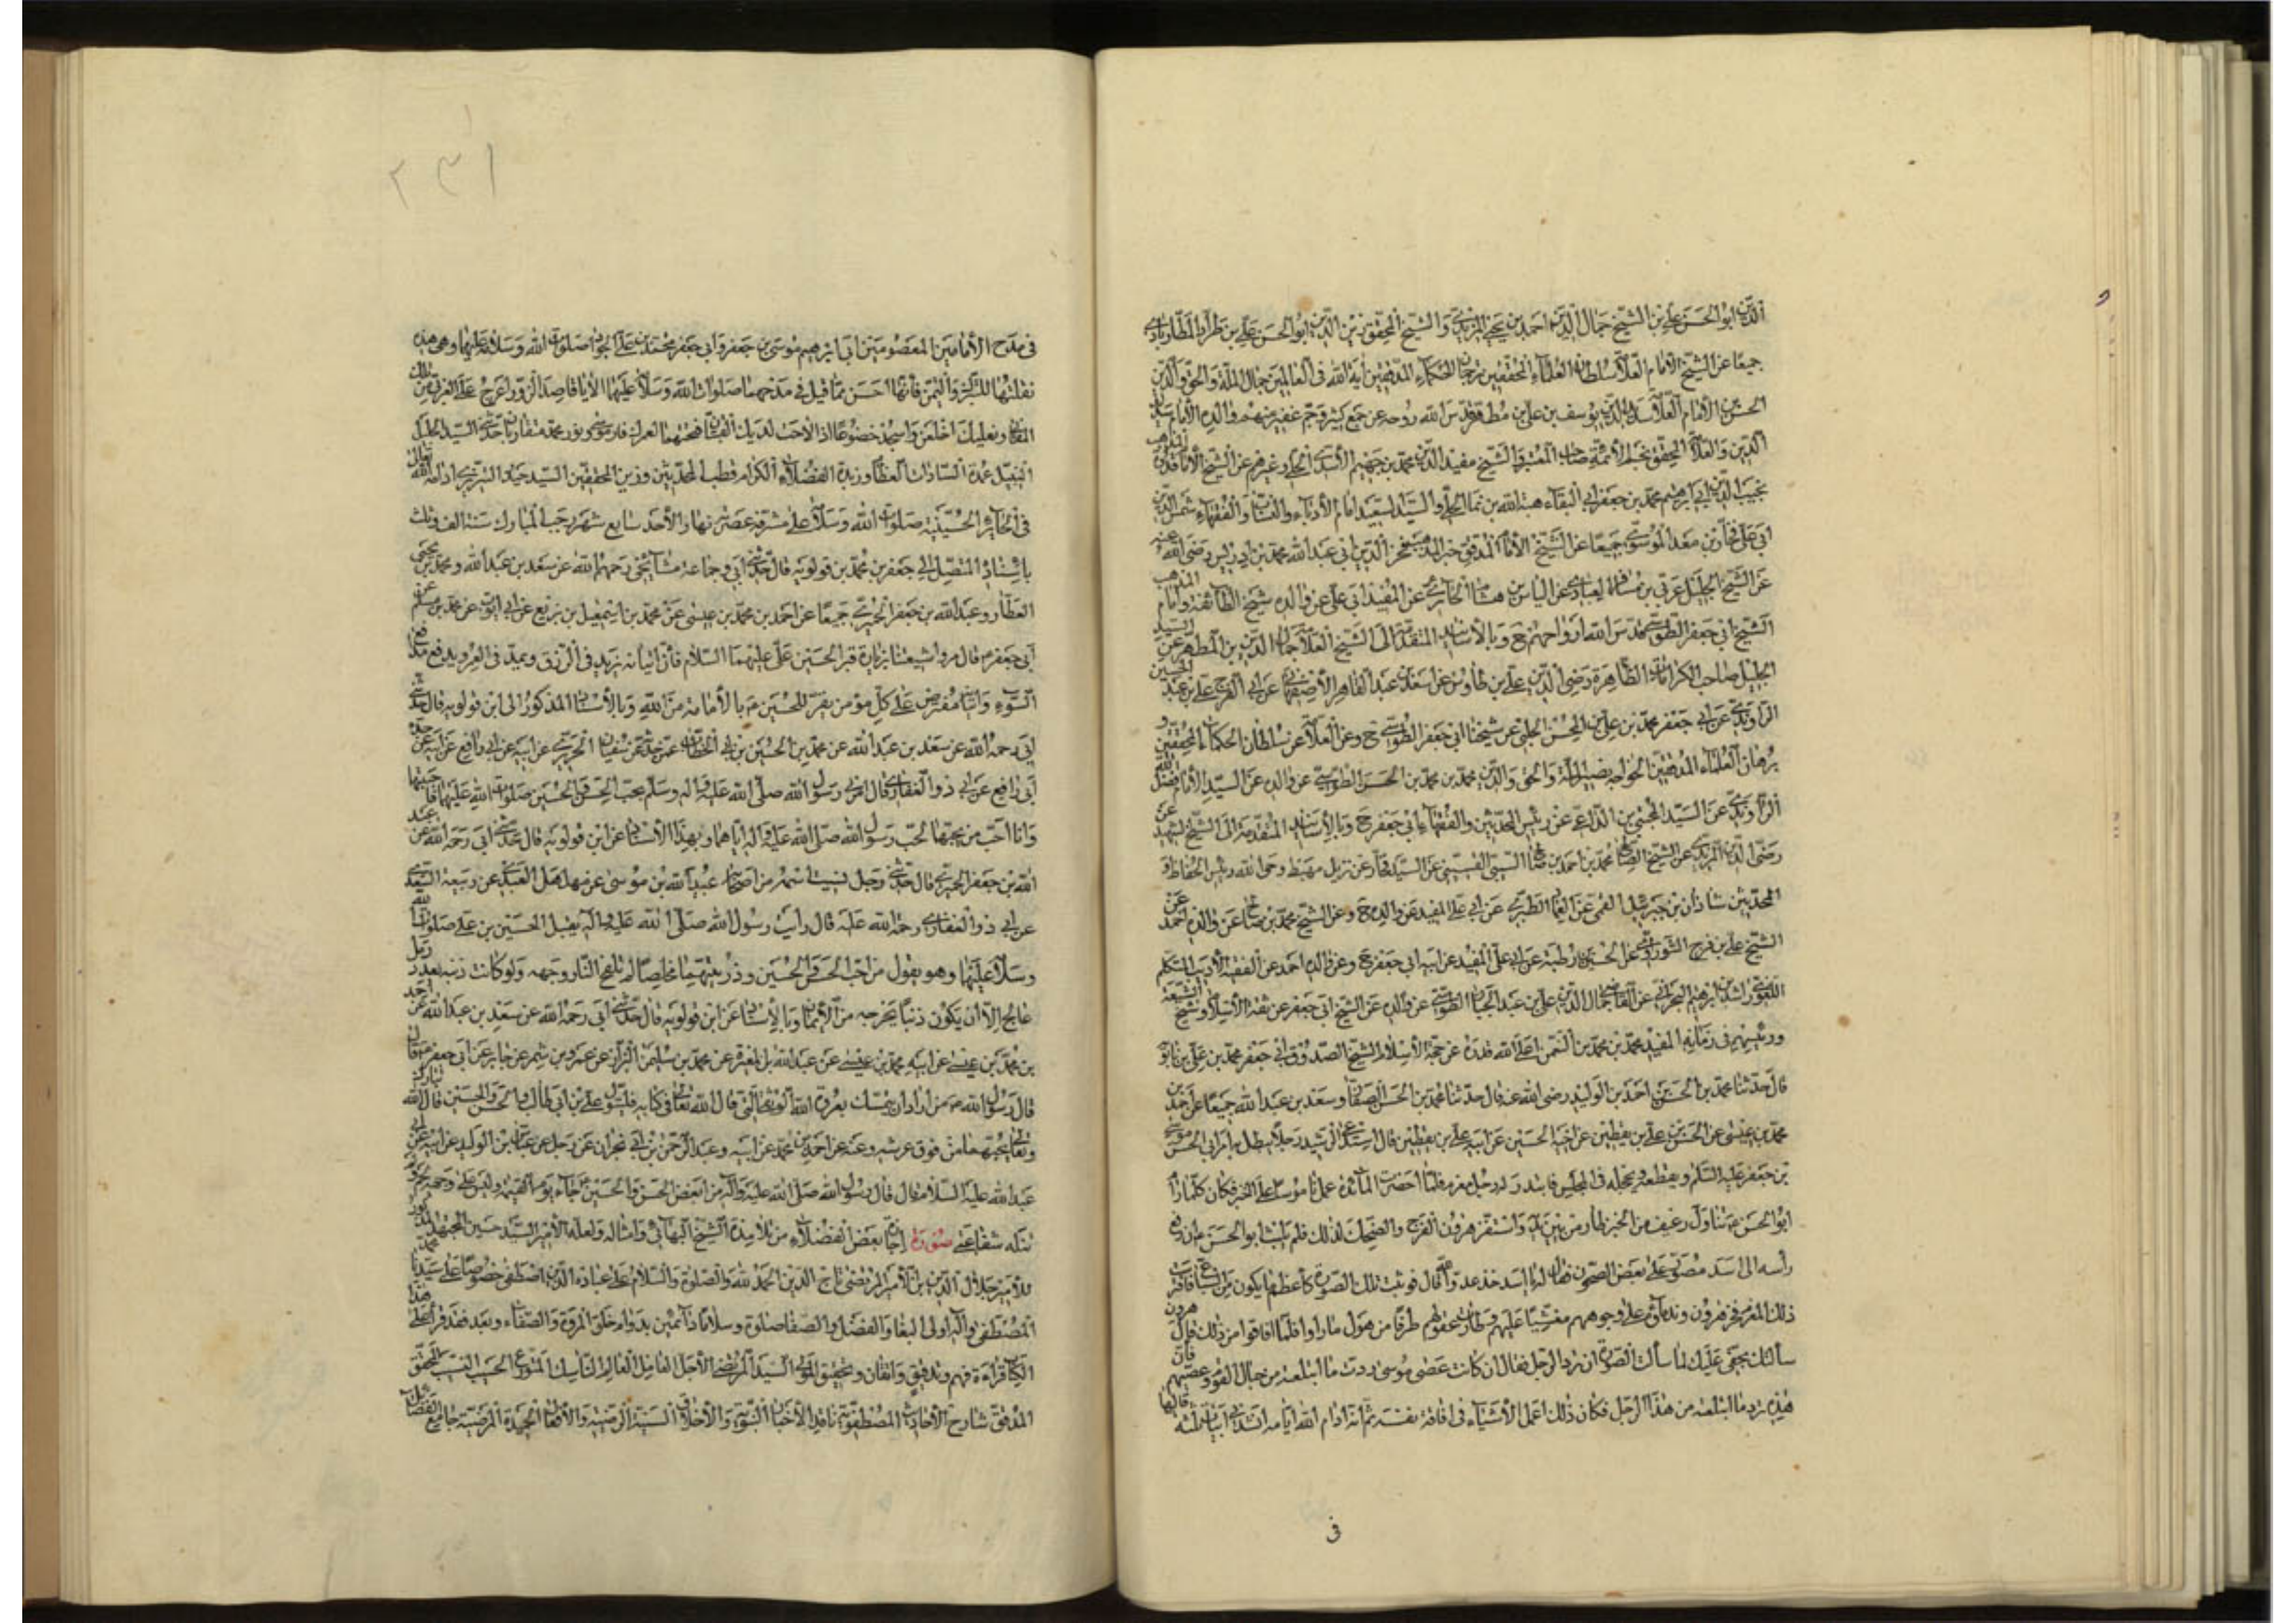 الدين ابو الحسن علي بن الشيخ جمال الدين احمد بن يحيى المزيدي و الشيخ المحقق زين الدين ابو الحسن علي بن طراد المطارابادي
جميعا عن الشيخ الامام العلامة سلطان العلماء المحققين ترجمان الحكماء المدققين آية الله في العالمين جمال الملة و الحق و الدين
الحسن بن الامام العلامة سديد الدين يوسف بن علي بن مطهر قدس الله روحه عن جمع كثير و جم غفير منهم والده الامام سديد
الدين و العلامة المحقق نجم الائمة صاحب المعتبر و الشيخ مفيد الدين محمد بن جهيم الاسدي الحلي و غيرهم عن الشيخ الامام قدوة المذاهب
نجيب الدين ابي ابرهيم محمد بن جعفر ابي البقاء هبة الله بن نما الحلي و السيد السعيد امام الادباء و النساب و الفقهاء شمس الدين
ابي علي فخار بن معد الموسوي جميعا عن الشيخ الامام المدقق حبر المذهب فخر الدين ابي عبد الله محمد بن ادريس رضي الله عنه
عن الشيخ الجليل عربي بن مسافر العبادي عن الياس بن هشام الحائري عن المفيد ابي علي عن والده شيخ الطائفة و امام المذهب
الشيخ ابي جعفر الطوسي قدس الله ارواحهم ح و بالاسناد المتقدم الى الشيخ العلامة جمال الدين بن المطهر عن السيد
الجليل صاحب الكرامات الظاهرة رضي الدين علي بن طاوس عن اسعد بن عبد القاهر الاصفهاني عن ابي الفرج علي بن عبد الحسين
الراوندي عن ابي جعفر محمد بن علي بن المحسن الحلبي عن شيخنا ابي جعفر الطوسي ح و عن العلامة عن سلطان الحكماء المحققين و
برهان العلماء المدققين الخواجه نصير الملة و الحق و الدين محمد بن محمد بن الحسن الطوسي عن والده عن السيد الامام فضل الله
الراوندي عن السيد المجتبى بن الداعي عن رئيس المحدثين و الفقهاء ابي جعفر ح و بالاسناد المتقدمة الى الشيخ الشهيد عن
رضي الدين المزيدي عن الشيخ الصالح محمد بن احمد بن صالح السيبي القسيني عن السيد فخار عن نزيل مهبط وحي الله و رئيس الحفاظ و
المحدثين شاذان بن جبرئيل القمي عن العماد الطبري عن ابي علي المفيد عن والده ح و عن الشيخ محمد بن صالح عن والده احمد عن
الشيخ علي بن فرج السوراوي عن الحسين بن رطبة عن ابي علي المفيد عن ابيه ابي جعفر ح و عن والده احمد عن الفقيه الاديب المتكلم
اللغوي راشد بن ابرهيم البحراني عن القاضي جمال الدين علي بن عبد الجبار الطوسي عن والده عن الشيخ ابي جعفر عن ثقة الاسلام و شيخ الشيعة
و رئيسهم في زمانه المفيد محمد بن محمد بن النعمن اعلى الله قدره عن حجة الاسلام الشيخ الصدوق ابي جعفر محمد بن علي بن بابويه
قال حدثنا محمد بن الحسن بن احمد بن الوليد رضي الله عنه قال حدثنا محمد بن الحسن الصفار و سعد بن عبد الله جميعا عن احمد بن
محمد بن عيسى عن الحسن بن علي بن يقطين عن اخيه الحسين عن ابيه علي بن يقطين قال استدعى الرشيد رجلا يبطل به امر ابي الحسن موسى
بن جعفر عليه السلام و يقطعه و يخجله في المجلس فانتدب له رجل معزم فلما احضرت المائدة عمل ناموسا على الخبز فكان كلما رام
ابو الحسن ع تناول رغيف من الخبز طار من بين يديه و استفز هرون الفرح و الضحك لذلك فلم يلبث ابو الحسن ع ان رفع
رأسه الى اسد مصور على بعض الصحون فقال له يا اسد خذ عدو الله قال فوثبت تلك الصورة كاعظم ما يكون من السباع فافترست
ذلك المعزم فخر هرون و ندماؤه على وجوههم مغشيا عليهم و طارت عقولهم طرقا من هول ما راوا فلما افاقوا من ذلك قال هرون
سألتك بحقي عليك لما سألت الصورة ان ترد الرجل فقال ان كانت عصى موسى ردت ما ابتلعته من حبال القوم و عصيهم فان
هذه ترد ما ابتلعته من هذا الرجل فكان ذلك اعمل الاشياء في افاقة نفسه ثم انه ادام الله ايامه انشدني ابياتا ثلثة قالها
في
٢٣١
في مدح الامامين المعصومين ابي ابرهيم موسى بن جعفر و ابي جعفر محمد بن علي الجواد صلوات الله و سلامه عليهما و هي هذه
نقلتها للتبرك و التيمن فانها احسن مما قيل في مدحهما صلوات الله و سلامه عليهما الا يا قاصد الزوراء عرج على الغربي من تلك
المغاني و نعليك اخلعن و اسجد خضوعا اذا لاحت لديك القبتان فتحتهما لعمرك نار موسى و نور محمد متقارنان حدثني السيد الجليل
النبيل عمدة السادات العظام و زبدة الفضلاء الكرام قطب المحدثين و زين المحققين السيد حيدر التبريزي ادامه الله تعالى
في الحائر الحسينية صلوات الله و سلامه على مشرفه عصر نهار الأحد سابع شهر رجب المبارك سنة الف و ثلث
باسناده المتصل الى جعفر بن محمد بن قولويه قال حدثني ابي و جماعة مشايخي رحمهم الله عن سعد بن عبد الله و محمد بن يحيى
العطار و عبد الله بن جعفر الحميري جميعا عن احمد بن محمد بن عيسى عن محمد بن اسمعيل بن بزيع عن ابي ايوب عن محمد بن مسلم عن
ابي جعفر ع قال مروا شيعتنا بزيارة قبر الحسين بن علي عليهما السلام فان اتيانه يزيد في الرزق و يمد في العمر و يدفع مدافع
السوء و اتيانه مفترض على كل مؤمن يقر للحسين ع بالامامة من الله و بالاسناد المذكور الى ابن قولويه قال حدثني
ابي رحمه الله عن سعد بن عبد الله عن محمد بن الحسين بن ابي الخطاب عمن حدثه عن سفيان الجريري عن ابيه عن ابي رافع عن ابيه عن جده
ابي رافع عن ابي ذر الغفاري قال امرني رسول الله صلى الله عليه و اله و سلم بحب الحسن و الحسين صلوات الله عليهما فاحبهما
و انا احب من يحبهما لحب رسول الله صلى الله عليه و اله اياهما و بهذا الاسناد عن ابن قولويه قال حدثني ابي رحمه الله عن عبد
الله بن جعفر الحميري قال حدثني رجل نسيت اسمه من اصحابنا عن عبيد الله بن موسى عن مهلهل العبدي عن ربيعة السعدي
عن ابي ذر الغفاري رحمة الله عليه قال رأيت رسول الله صلى الله عليه و اله يقبل الحسين بن علي صلوات الله
و سلامه عليهما و هو يقول من احب الحسن و الحسين و ذريتهما مخلصا لم تلفح النار وجهه و لو كانت ذنوبه بعدد رمل
عالج الا ان يكون ذنبا يخرجه من الايمان و بالاسناد عن ابن قولويه قال حدثني ابي رحمه الله عن سعد بن عبد الله عن احمد
بن محمد بن عيسى عن ابيه محمد بن عيسى عن عبد الله بن المغيرة عن محمد بن سليمن البزاز عن عمرو بن شمر عن جابر عن ابي جعفر ع قال
قال رسول الله ص من اراد ان يتمسك بعروة الله الوثقى التي قال الله تعالى في كتابه فليتول علي بن ابي طالب و الحسن و الحسين فان الله تبارك
و تعالى يحبهما من فوق عرشه و عنه عن احمد بن محمد عن ابيه و عبد الرحمن بن ابي نجران عن رجل عن عباس بن الوليد عن ابيه عن ابي
عبد الله عليه السلام قال قال رسول الله صلى الله عليه و آله من ابغض الحسن و الحسين جاء يوم القيمة و ليس على وجهه لحم و لم
تنله شفاعتي صورة اجازة بعض الفضلاء من تلامذة الشيخ البهائي و امثاله و لعله الامير السيد حسين المجتهد
للامير جلال الدين بن الامير المرتضى تاج الدين الحمد لله و الصلوة و السلام على عباده الذين اصطفى خصوصا على سيدنا محمد
المصطفى و آله اولى البقا و الفضل و الصفا صلوة و سلاما دائمين بدوام خلق المروة و الصفاء و بعد فقد قرأ على هذا
الكتاب قراءة فهم و تدقيق و اتقان و تحقيق المولى السيد المرتضى الأجل الفاضل العالم الناسك المتورع الحسيب النسيب المحقق
المدقق شارح الاحاديث المصطفوية ناقد الاخبار النبوية و الاخلاق السنية المرضية و الافعال الحميدة المرضية جامع الفضائل